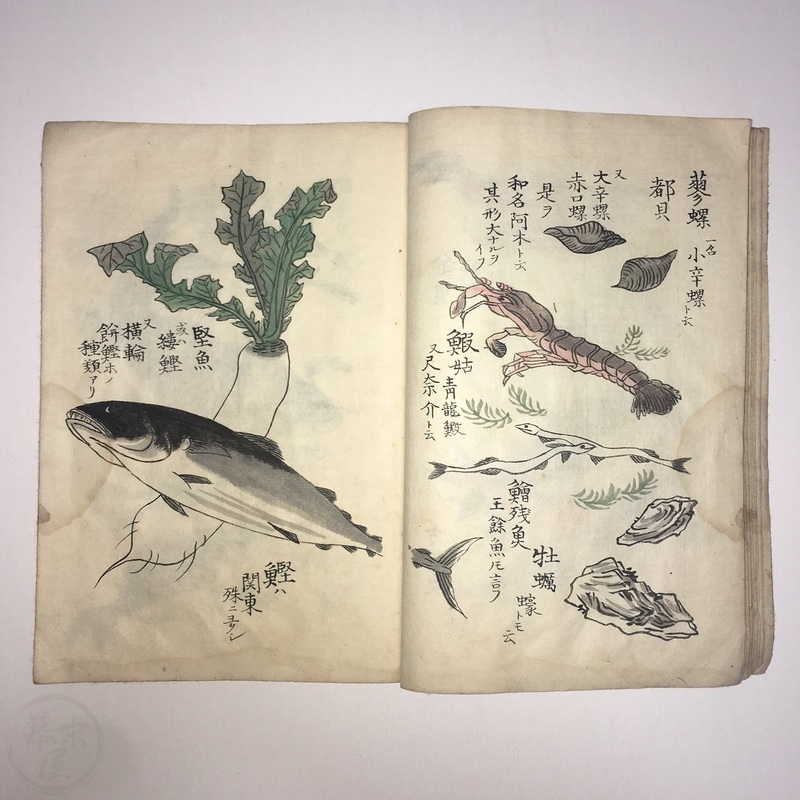 蓼螺 一名 小辛螺ト云
都貝
又
大辛螺
赤口螺
是ヲ
和名阿木ト云
其形大ナルヲイフ
鰕姑 青龍鰕
又尺奈介ト云
鱠残魚
王餘魚トモ言フ
牡蠣
蠔トモ云
堅魚
或ハ
縷鰹
又
横輪
餅鰹ホノ
種類アリ
鰹ハ
関東
殊ニ多シ